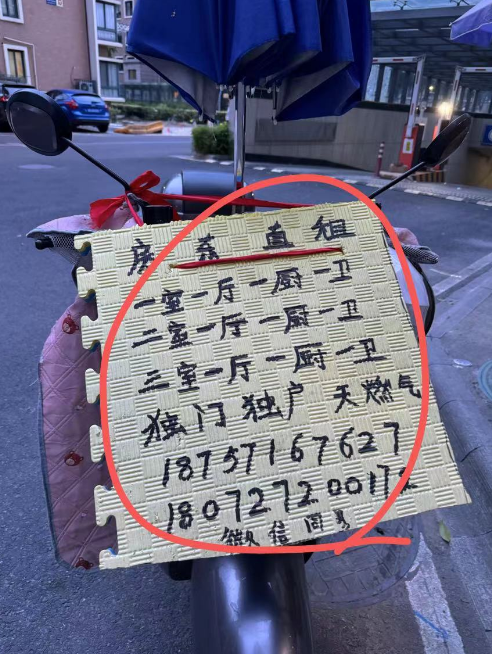 房东直租
一室一厅一厨一卫
二室一厅一厨一卫
三室一厅一厨一卫
独门独户 天燃气
18757167627
微信同号